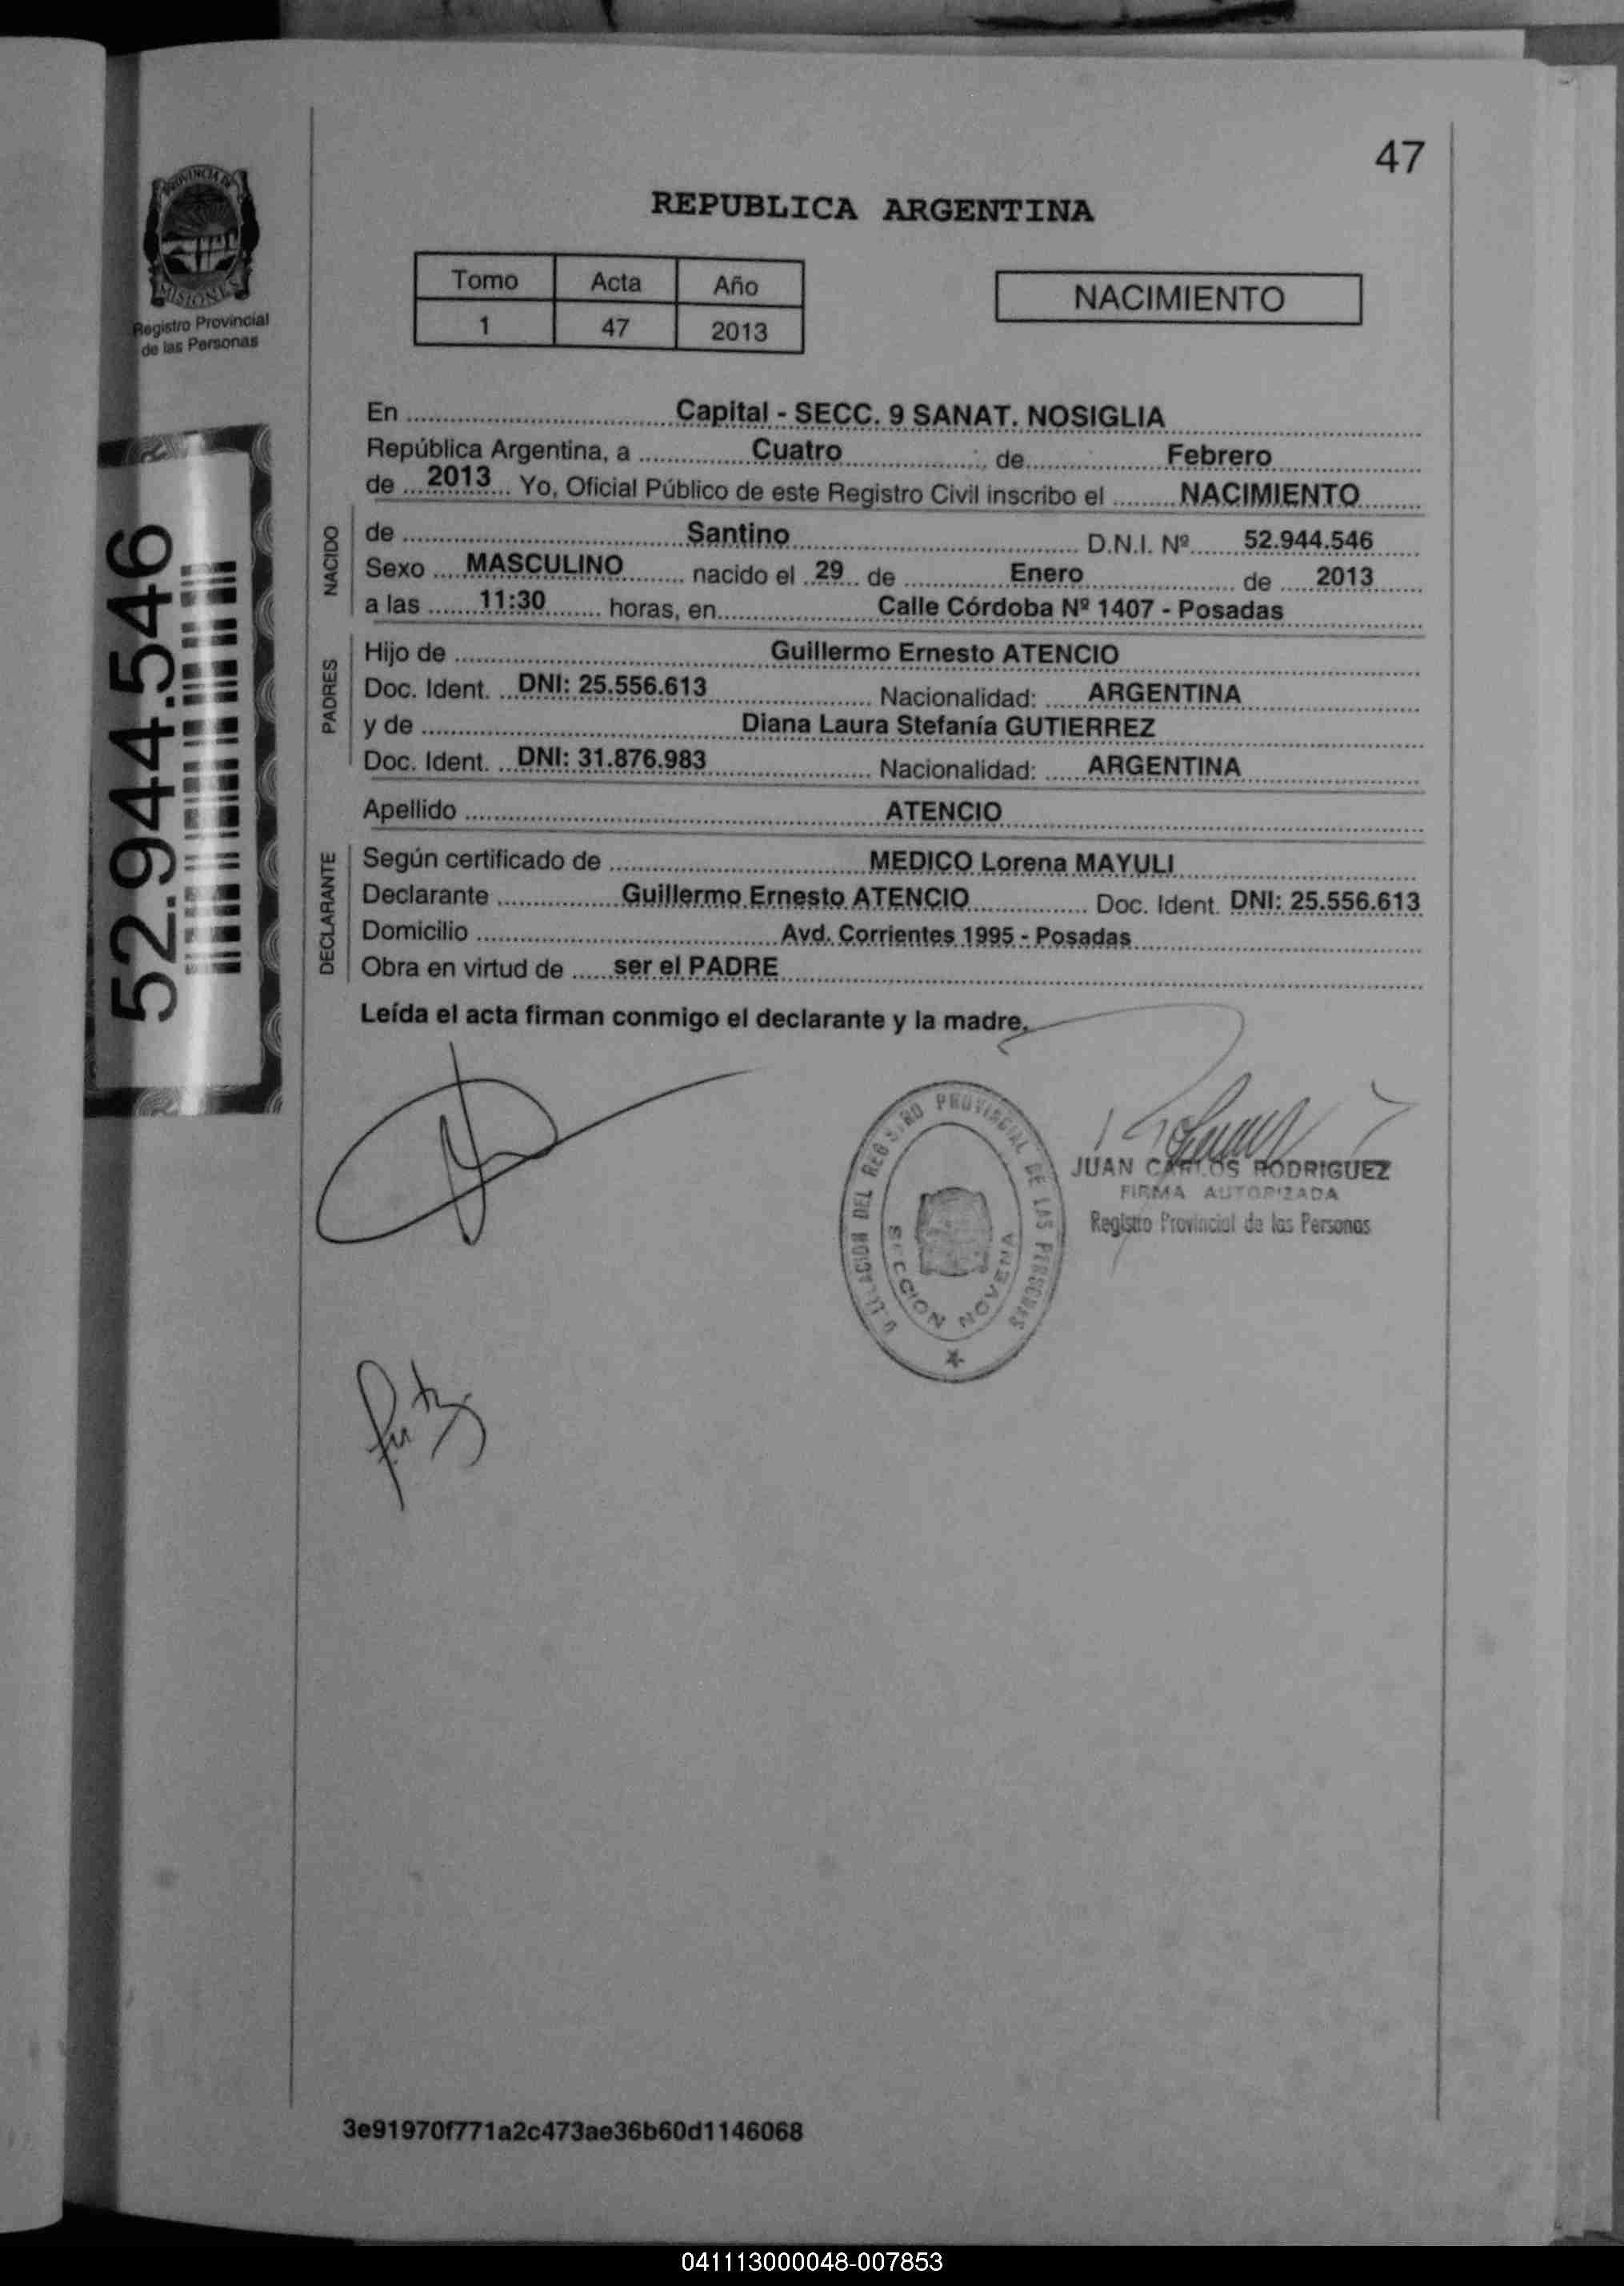 47
REPUBLICA ARGENTINA
PROVINCIA DE
MISIONES
Registro Provincial
de las Personas
Tomo Acta Año
1 47 2013
NACIMIENTO
52.944.546
En ........ Capital - SECC. 9 SANAT. NOSIGLIA
República Argentina, a ........ Cuatro ........ de ........ Febrero
de ... 2013 ... Yo, Oficial Público de este Registro Civil inscribo el ........ NACIMIENTO
NACIDO
de ........ Santino ........ D.N.I. Nº ........ 52.944.546
Sexo .... MASCULINO ........ nacido el .. 29 .. de ........ Enero ........ de .... 2013
a las ....... 11:30 ........ horas, en ........ Calle Córdoba Nº 1407 - Posadas
PADRES
Hijo de ........ Guillermo Ernesto ATENCIO
Doc. Ident. ... DNI: 25.556.613 ........ Nacionalidad: ...... ARGENTINA
y de ........ Diana Laura Stefanía GUTIERREZ
Doc. Ident. ... DNI: 31.876.983 ........ Nacionalidad: ...... ARGENTINA
Apellido ........ ATENCIO
DECLARANTE
Según certificado de ........ MEDICO Lorena MAYULI
Declarante ........ Guillermo Ernesto ATENCIO ........ Doc. Ident. DNI: 25.556.613
Domicilio ........ Avd. Corrientes 1995 - Posadas
Obra en virtud de ...... ser el PADRE
Leída el acta firman conmigo el declarante y la madre.
DEL REGISTRO PROVINCIAL DE LAS PERSONAS
SECCION NOVENA
JUAN CARLOS RODRIGUEZ
FIRMA AUTORIZADA
Registro Provincial de las Personas
3e91970f771a2c473ae36b60d1146068
041113000048-007853